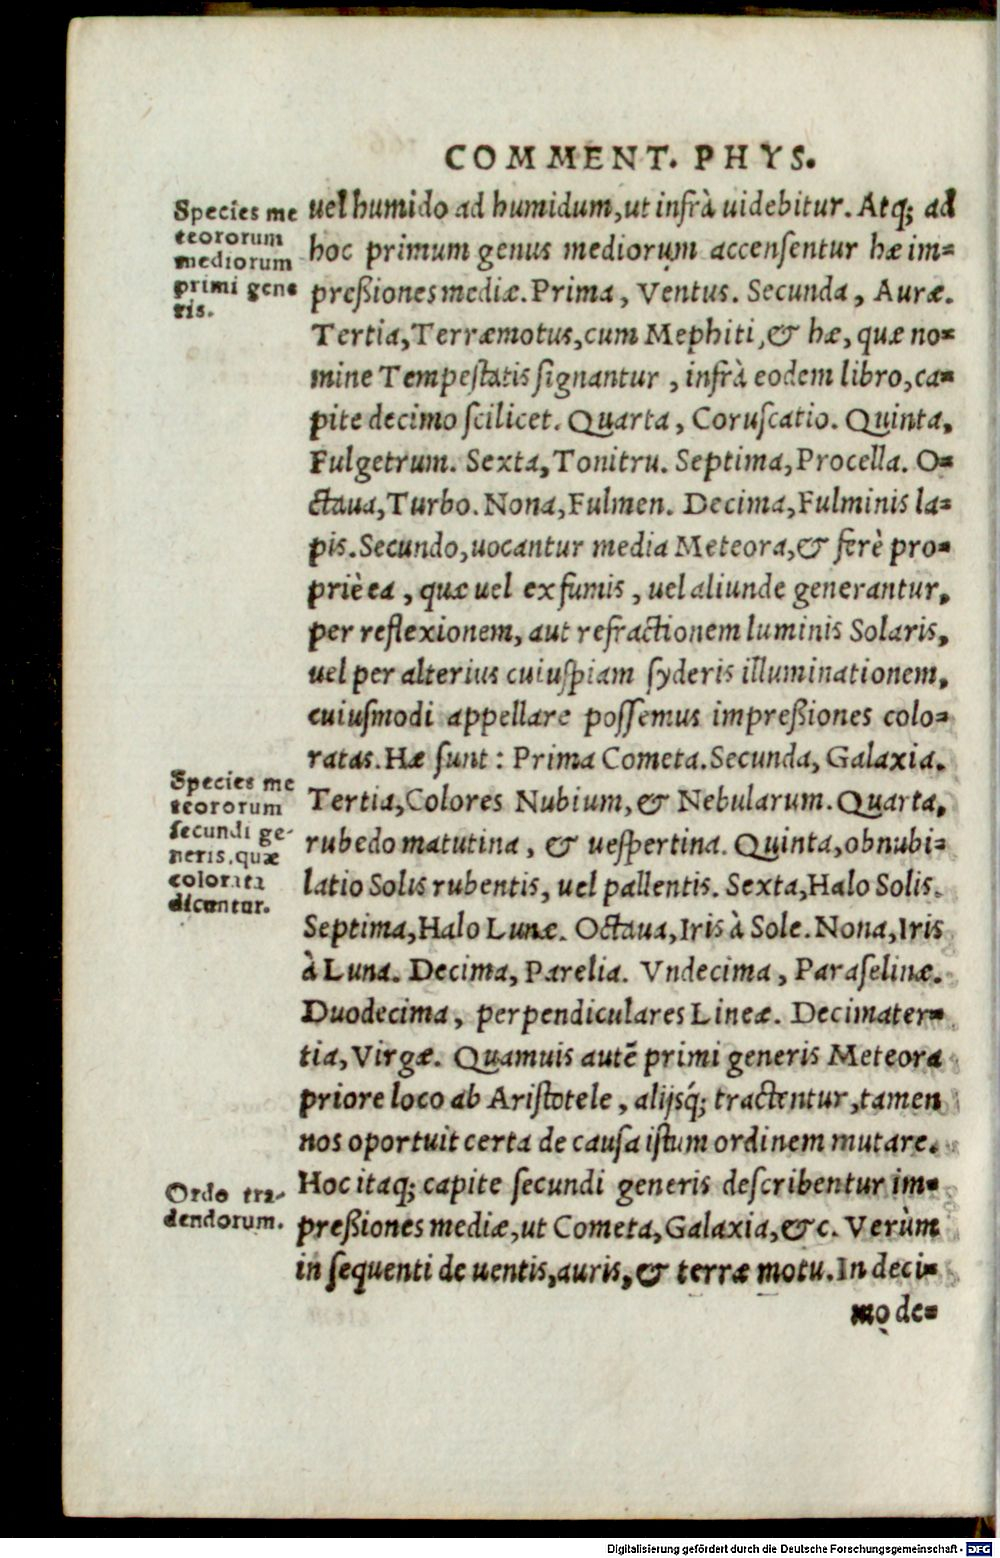 COMMENT. PHYS.
Species me
teororum
mediorum
primi gene
ris.
uel humido ad humidum, ut infrà uidebitur. Atq; ad
hoc primum genus mediorum accensentur hæ im-
preßiones mediæ. Prima, Ventus. Secunda, Auræ.
Tertia, Terræmotus, cum Mephiti, & hæ, quæ no-
mine Tempestatis signantur, infrà eodem libro, ca-
pite decimo scilicet. Quarta, Coruscatio. Quinta,
Fulgetrum. Sexta, Tonitru. Septima, Procella. O-
ctaua, Turbo. Nona, Fulmen. Decima, Fulminis la-
pis. Secundo, uocantur media Meteora, & ferè pro-
priè ea, quæ uel ex fumis, uel aliunde generantur,
per reflexionem, aut refractionem luminis Solaris,
uel per alterius cuiuspiam syderis illuminationem,
cuiusmodi appellare possemus impreßiones colo-
ratas. Hæ sunt: Prima Cometa. Secunda, Galaxia.
Species me
teororum
secundi ge-
neris, quæ
colorata
dicuntur.
Tertia, Colores Nubium, & Nebularum. Quarta,
rubedo matutina, & uespertina. Quinta, obnubi-
latio Solis rubentis, uel pallentis. Sexta, Halo Solis.
Septima, Halo Lunæ. Octaua, Iris à Sole. Nona, Iris
à Luna. Decima, Parelia. Vndecima, Paraselinæ.
Duodecima, perpendiculares Lineæ. Decimater-
tia, Virgæ. Quamuis autē primi generis Meteora
priore loco ab Aristotele, alijsq́; tractentur, tamen
nos oportuit certa de causa istum ordinem mutare.
Ordo tra-
dendorum.
Hoc itaq; capite secundi generis describentur im-
preßiones mediæ, ut Cometa, Galaxia, &c. Verùm
in sequenti de uentis, auris, & terræ motu. In deci-
mo de-
Digitalisierung gefördert durch die Deutsche Forschungsgemeinschaft - DFG